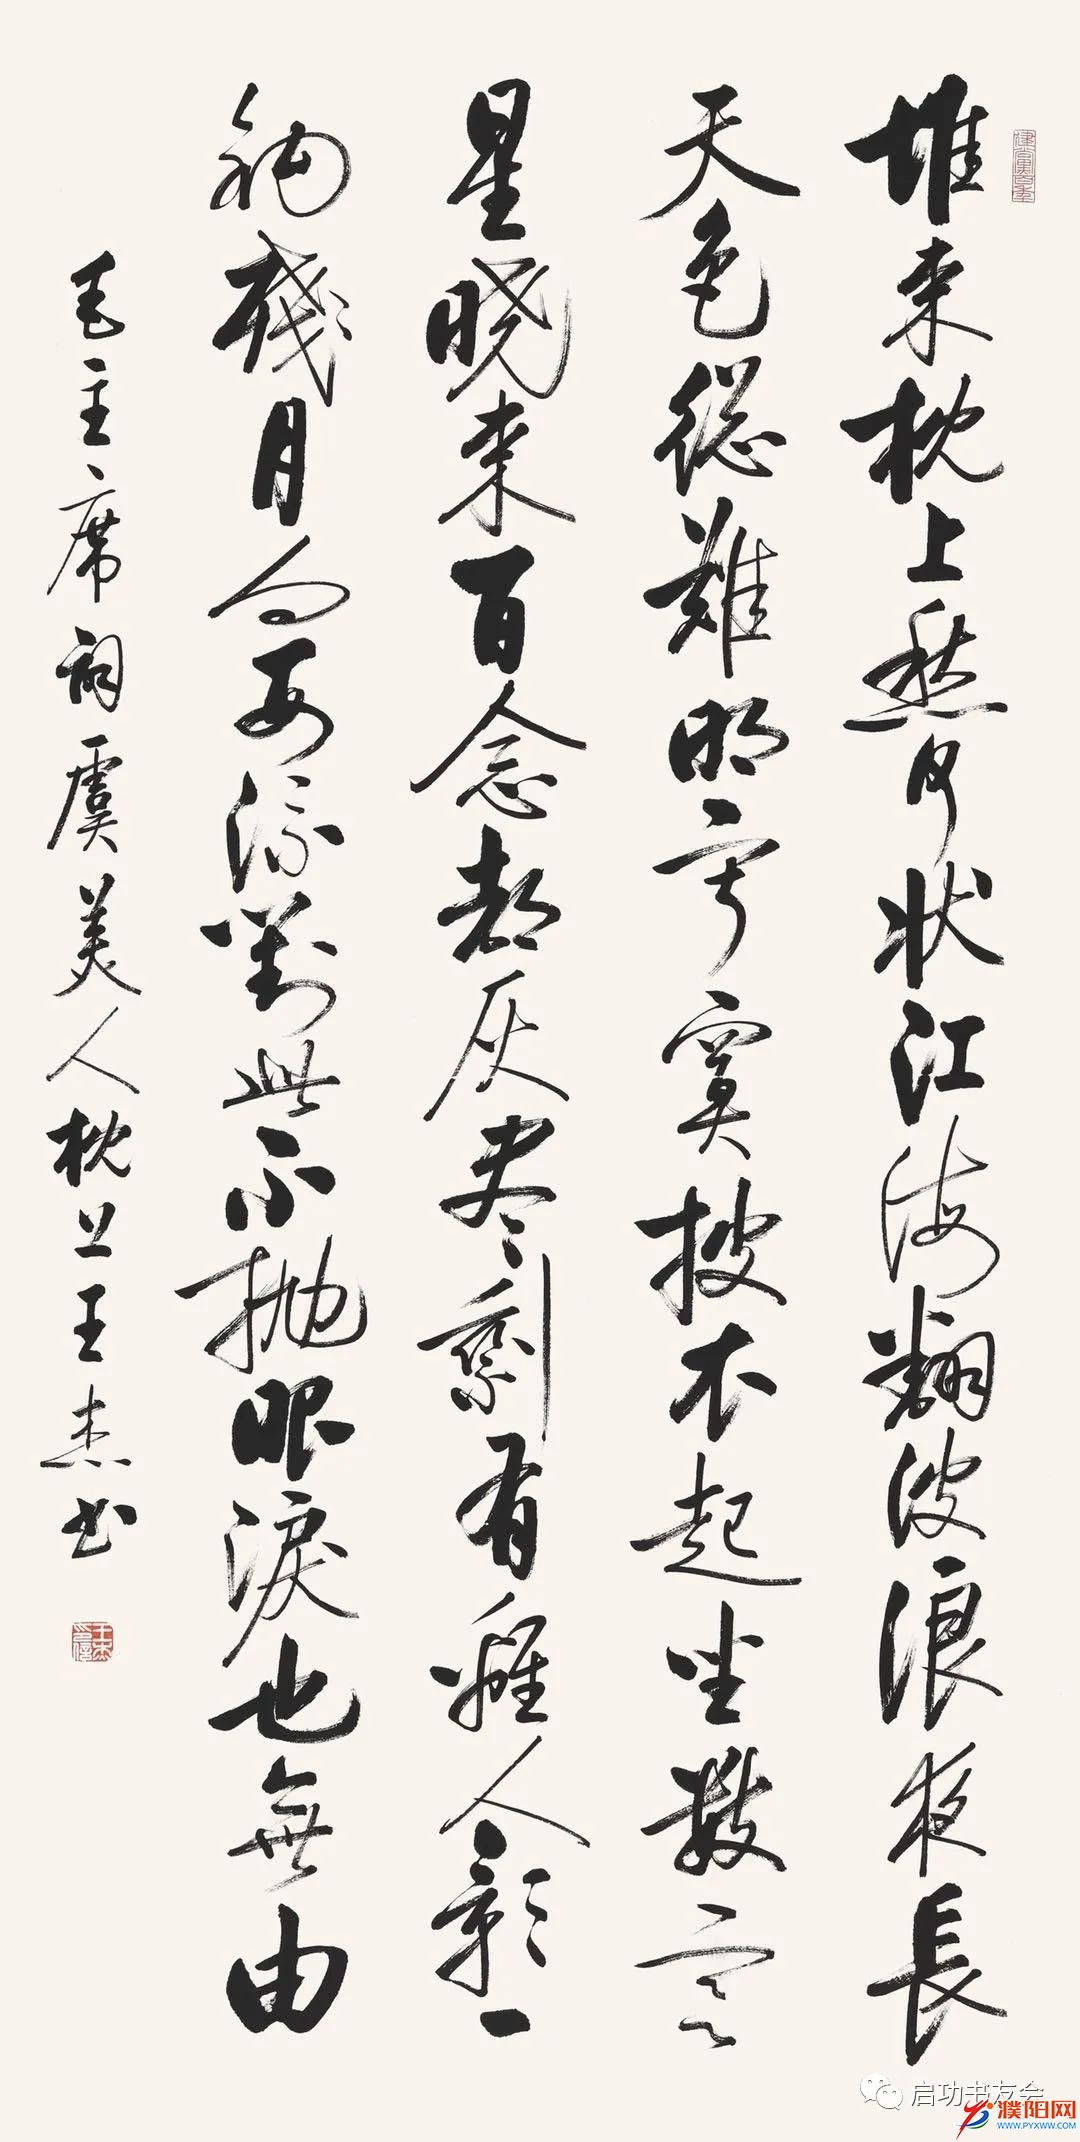 堆来枕上愁何状江海翻波浪夜長
天色總難明寂寞披衣起坐數寒
星曉来百念都灰尽剩有離人影一
鈎殘月向西流對此不抛眼淚也無由
毛主席詞虞美人枕上王杰书
建党百年
启功书友会
濮阳网
WWW.PYXWW.COM